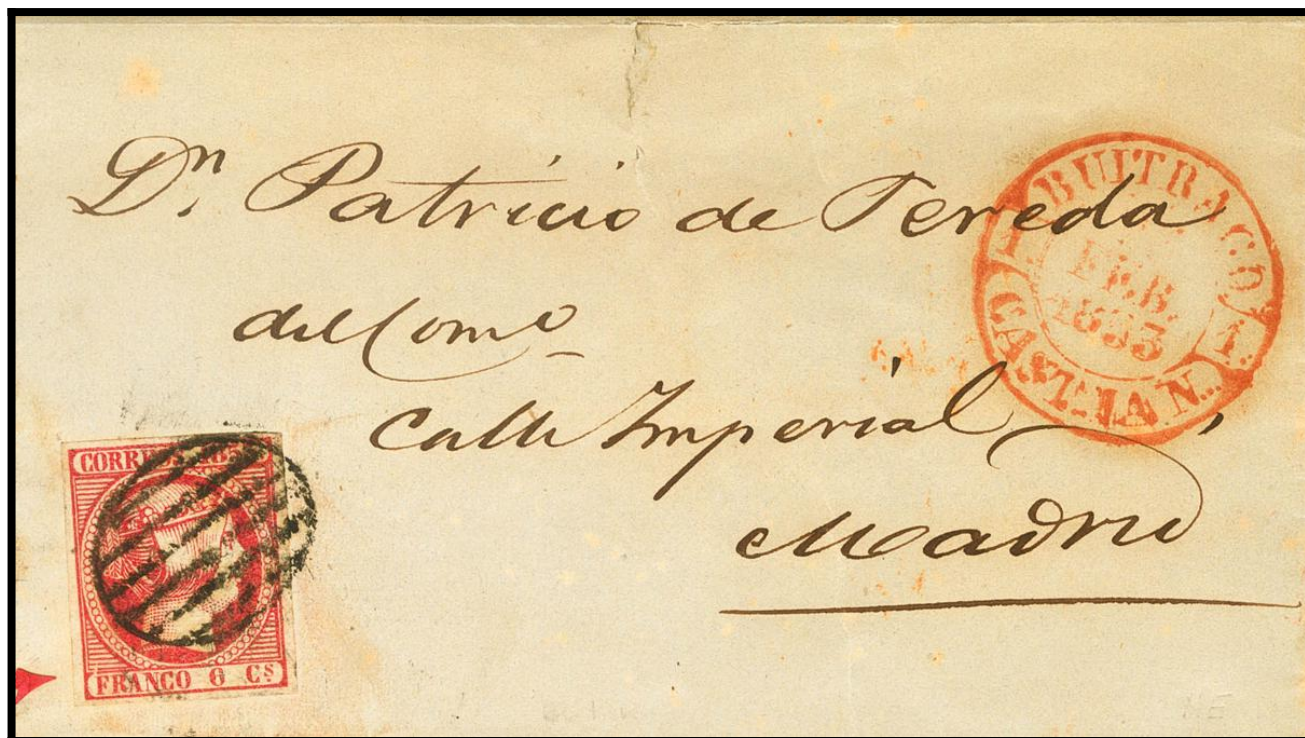 Dn. Patricio de Pereda
del Como
Calle Imperial,
Madrid
BUITRAGO
FEB.
1853
1
CAST. LA N.
CORREOS
FRANCO 6 Cs